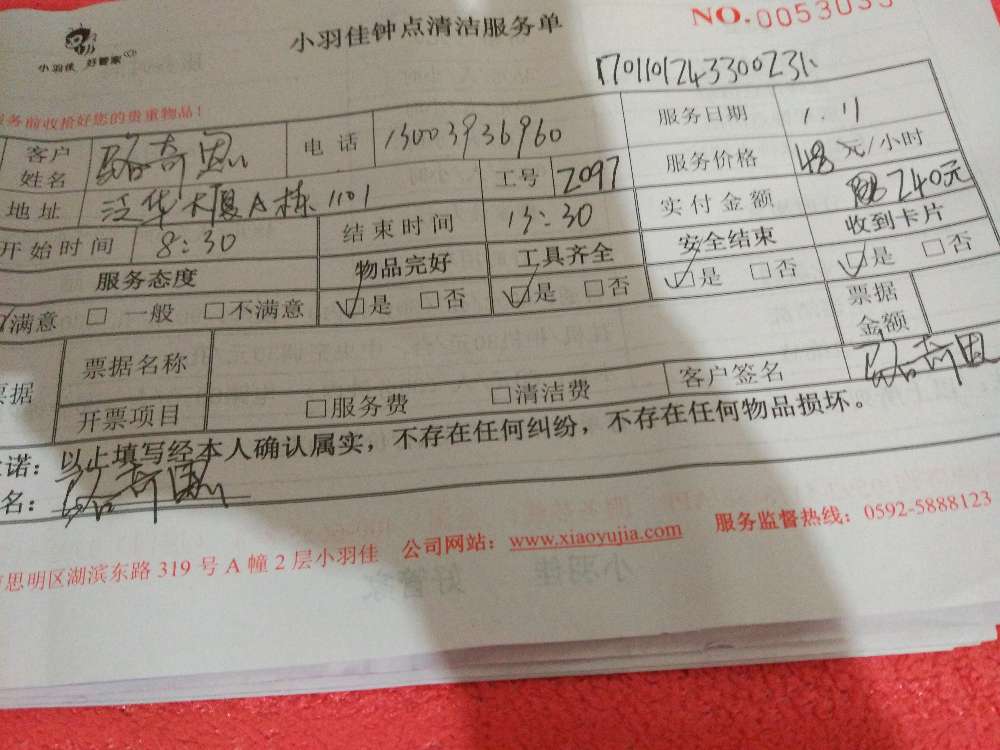 小羽佳 好管家
小羽佳钟点清洁服务单
NO.0053035
170110124330023
务前收拾好您的贵重物品!
客户姓名 路奇恩 电话 13003936960 服务日期 1.11
地址 泛华大厦A栋1101 工号 2097 服务价格 48元/小时
开始时间 8:30 结束时间 13:30 实付金额 240元
服务态度 物品完好 工具齐全 安全结束 收到卡片
满意 □ 一般 □不满意 ☑是 □否 ☑是 □否 ☑是 □否 ☑是 □否
票据名称 票据金额
据 开票项目 □服务费 □清洁费 客户签名 路奇恩
诺: 以上填写经本人确认属实,不存在任何纠纷,不存在任何物品损坏。
名: 路奇恩
思明区湖滨东路 319 号 A 幢 2 层小羽佳 公司网站: www.xiaoyujia.com 服务监督热线: 0592-5888123